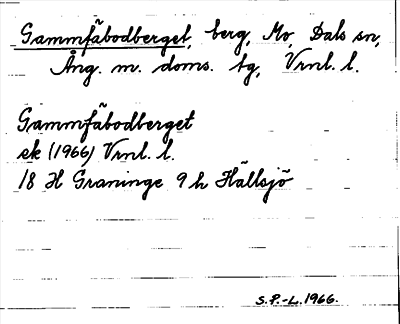 Gammfäbodberget, berg, Mo, Dals sn,
Ång. m. doms. tg, Vrnl. l.
Gammfäbodberget
ek (1966) Vrnl. l.
18 H Graninge 9 h Hällsjö
S.P.-L. 1966.